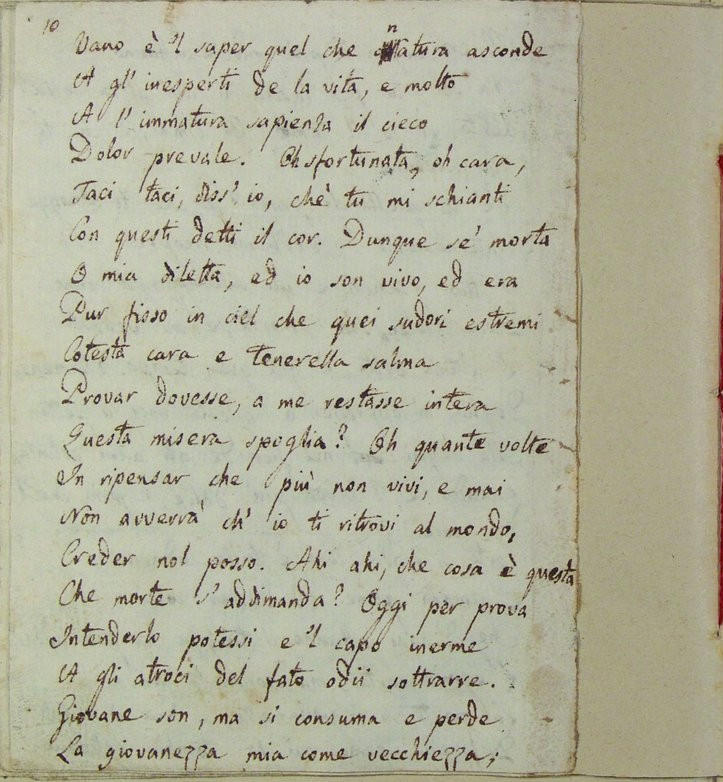 10
Vano è 'l saper quel che natura asconde
A gl' inesperti de la vita, e molto
A l' immatura sapienza il cieco
Dolor prevale. Oh sfortunata, oh cara,
Taci taci, diss' io, chè tu mi schianti
Con questi detti il cor. Dunque se' morta
O mia diletta, ed io son vivo, ed era
Pur fisso in ciel che quei sudori estremi
Cotesta cara e tenerella salma
Provar dovesse, a me restasse intera
Questa misera spoglia? Oh quante volte
In ripensar che più non vivi, e mai
Non avverrà ch' io ti ritrovi al mondo,
Creder nol posso. Ahi ahi, che cosa è questa
Che morte s' addimanda? Oggi per prova
Intenderlo potessi e 'l capo inerme
A gli atroci del fato odii sottrarre.
Giovane son, ma si consuma e perde
La giovanezza mia come vecchiezza;